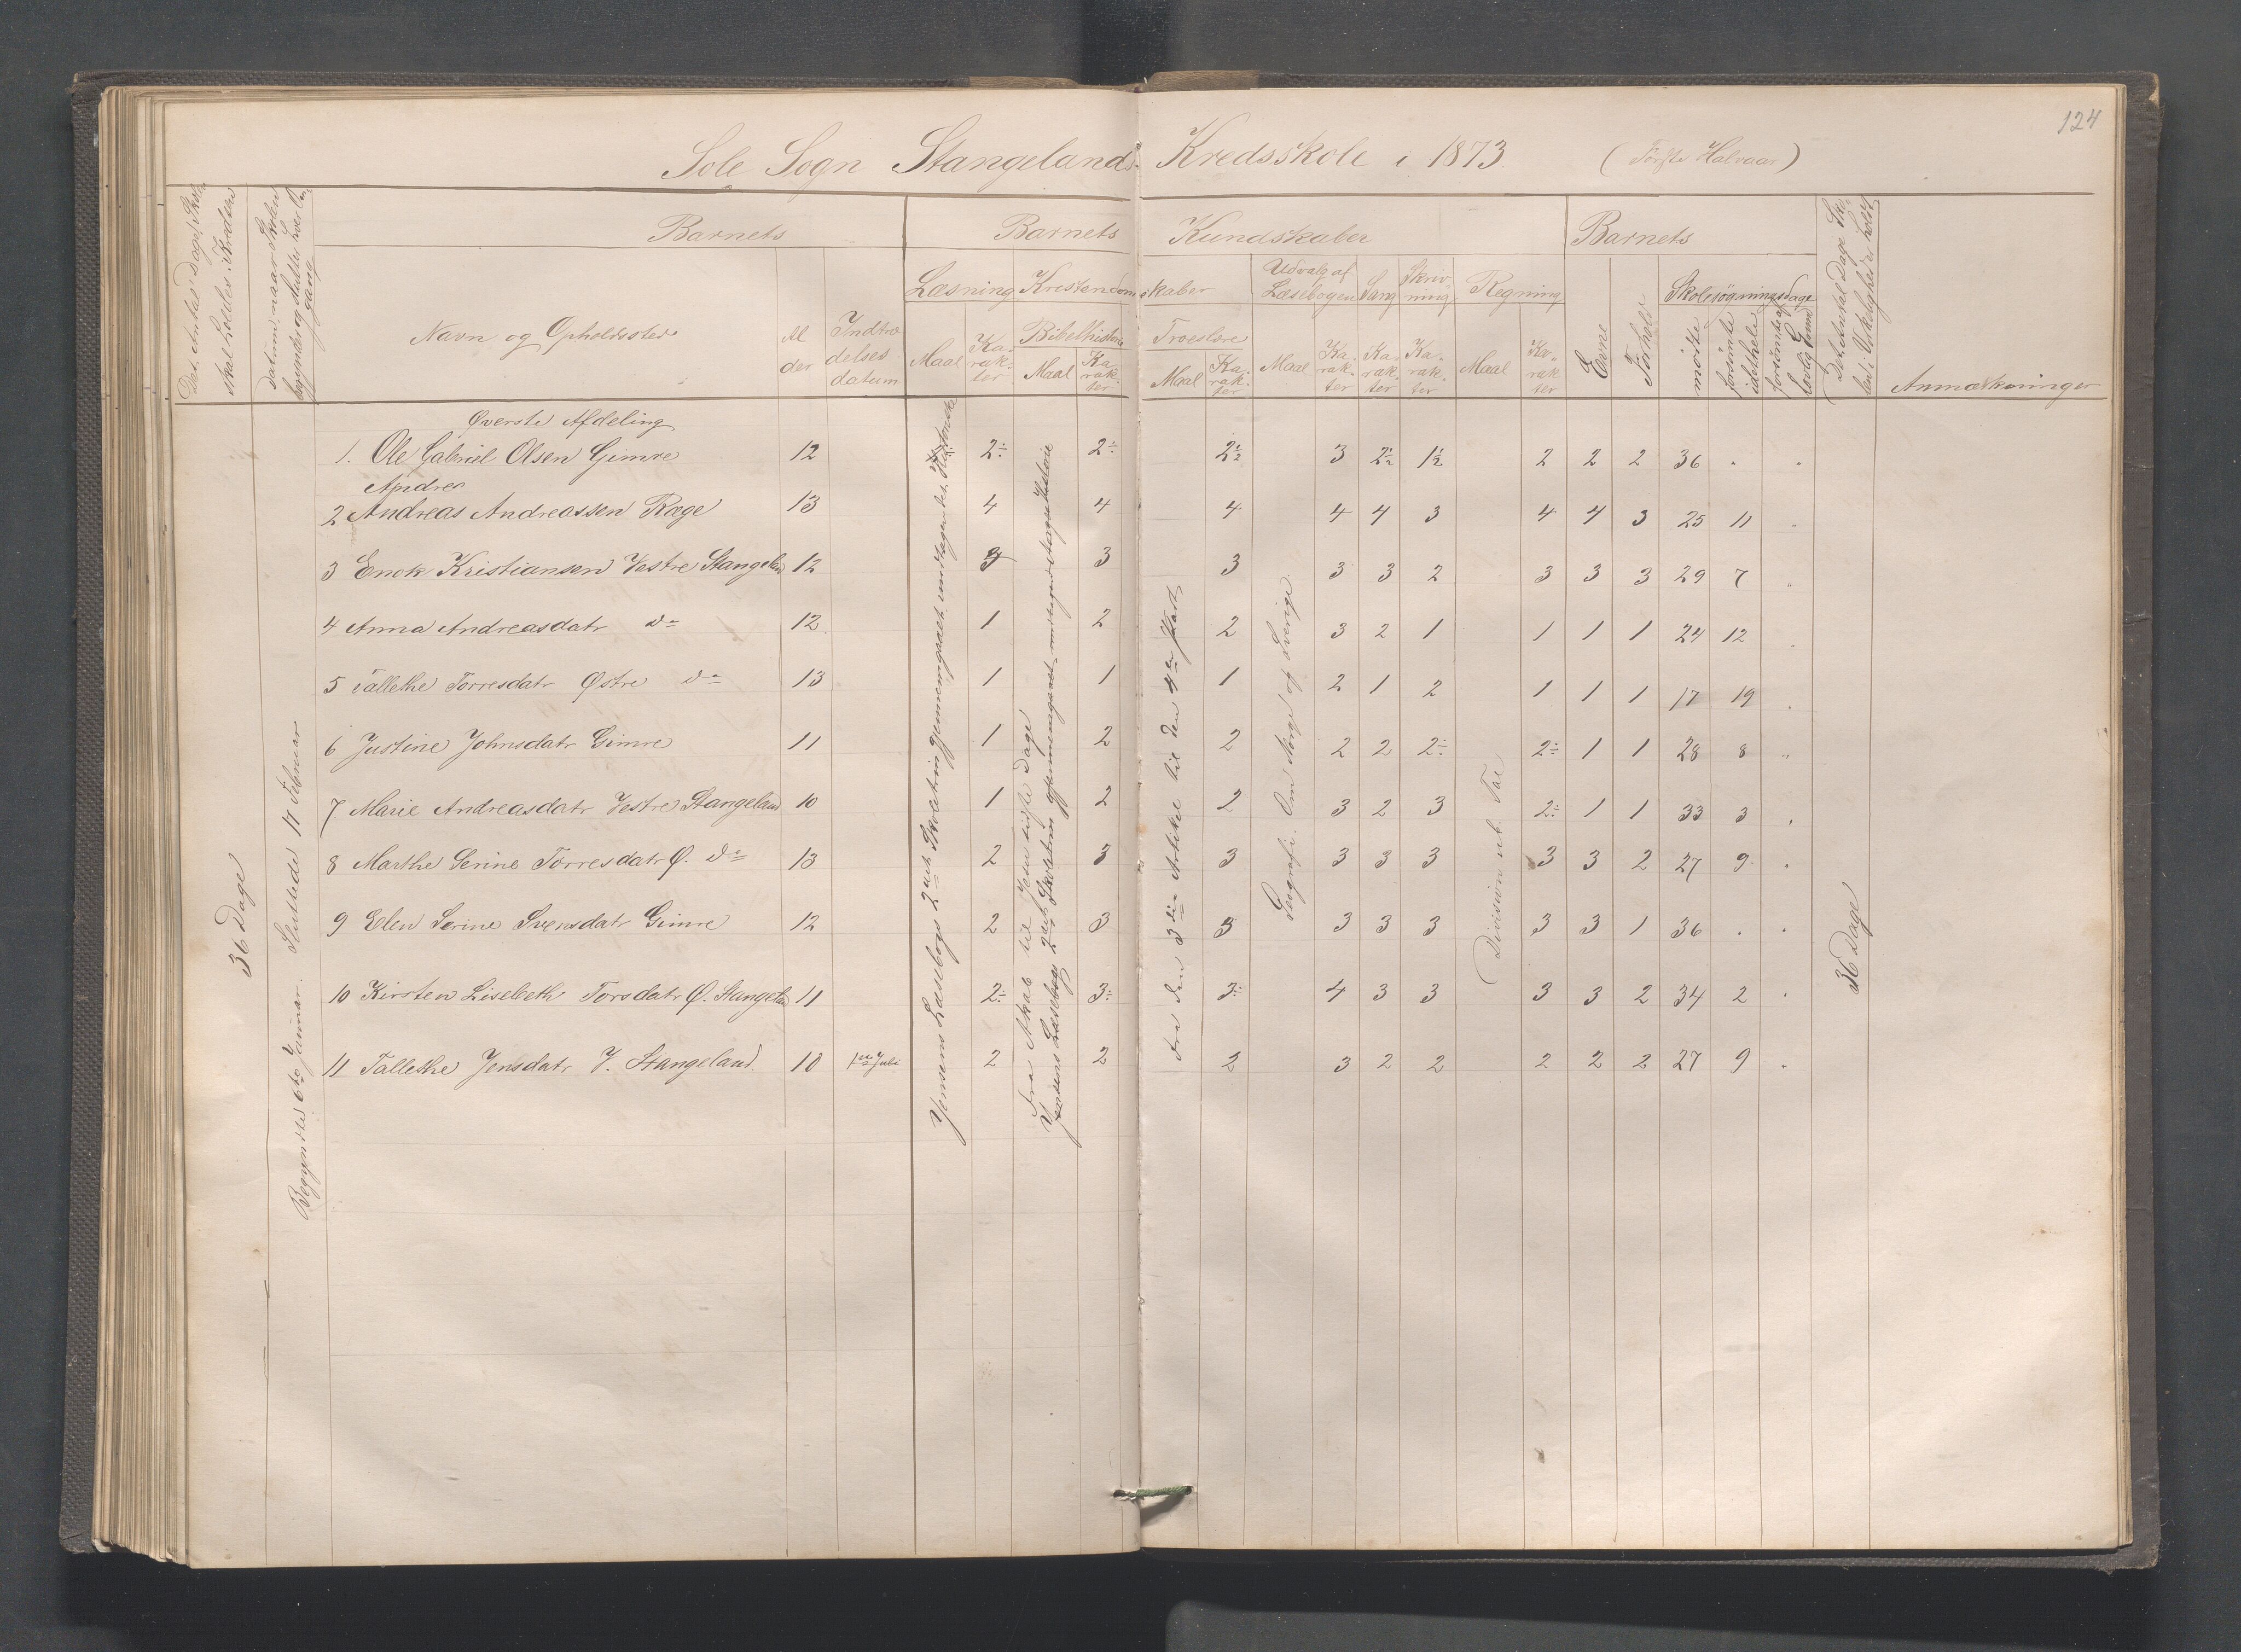 124
Sole Sogn Stangelands Kredsskole i 1873 (Første Halvaar)
Det Antal Dage, Skole skal holdes i Kredsen
Datum, naar Skolen begynder og slutter hver Gang
Barnets
Navn og Opholdssted
Alder
Indtrædelses datum
Barnets Kundskaber
Læsning
Maal
Karakter
Kristendomskaber
Bibelhistorie
Maal
Karakter
Troeslære
Maal
Karakter
Udvalg af Læsebogen
Maal
Karakter
Sang
Karakter
Skrivning
Karakter
Regning
Maal
Karakter
Barnets
Evne
Forhold
Skolesøgningsdage
mødte
forsømte idethele
forsømte af lovlig Grund
Det Antal Dage Skolen i Virkeligheden holdt
Anmærkninger
36 Dage
Begyndte 6te Januar. Sluttede 17 Februar
Øverste Afdeling
1. Ole Gabriel Olsen Gimre 12 2÷ 2÷ 2½ 3 2½ 1½ 2 2 2 36 . .
Andres
2 Andreas Andreassen Ræge 13 4 4 4 4 4 3 4 4 3 25 11 .
3 Enok Kristiansen Vestre Stangeland 12 3 3 3 3 3 2 3 3 3 29 7 .
4 Anna Andreasdatr do 12 1 2 2 3 2 1 1 1 1 24 12 .
5 Tallethe Torresdatr Østre do 13 1 1 1 2 1 2 1 1 1 17 19 .
6 Justine Johnsdatr Gimre 11 1 2 2 2 2 2÷ 2÷ 1 1 28 8 ..
7 Marie Andreasdatr Vestre Stangeland 10 1 2 2 3 2 3 2÷ 1 1 33 3 .
8 Marthe Serine Torresdatr Ø. do 13 2 3 3 3 3 3 3 3 2 27 9 .
9 Elen Serine Svensdatr Gimre 12 2 3 3 3 3 3 3 3 1 36 . .
10 Kirsten Lisebeth Torsdatr Ø. Stangeland 11 2÷ 3÷ 3÷ 4 3 3 3 3 2 34 2 .
11 Tallethe Jensdatr V. Stangeland 10 1ste Juli 2 2 2 3 2 2 2 2 2 27 9 .
Jensens Læsebogs 2det Skoletrin gjennemgaaet undtagen det
Fra Akab til Jesu sidste Dage
Jensens Læsebogs 2det Skoletrin gjennemgaaet undtagen Norges Historie
Fra den 3die Artikel til den 4de Part
Geografi. Om Norge og Sverige.
Division ub. Tal
36 Dage